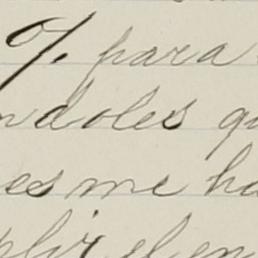 %. para
ndoles qu
es me ha
plir el en